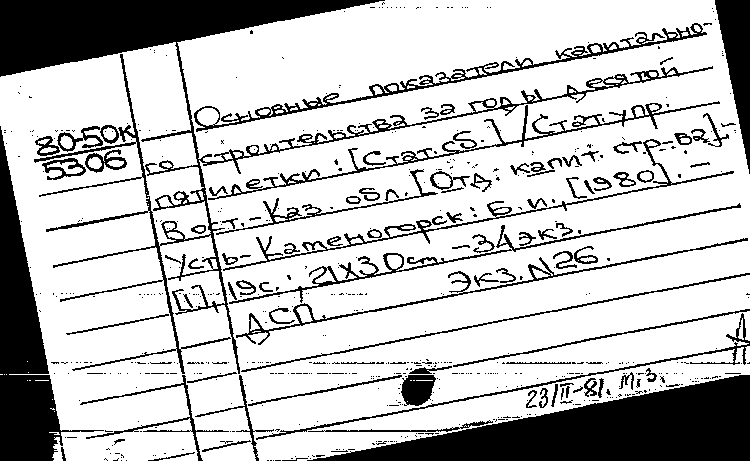 80-50к
5306
Основные показатели капитально-
го строительства за годы десятой
пятилетки : [Стат. сб.] / Стат. упр.
Вост.-Каз. обл. [Отд. капит. стр-ва]. -
Усть-Каменогорск : Б. и., [1980]. -
[1], 19 с. ; 21х30 см. - 34 экз.
ДСП. Экз. N 26.
23/II-81. т.з.